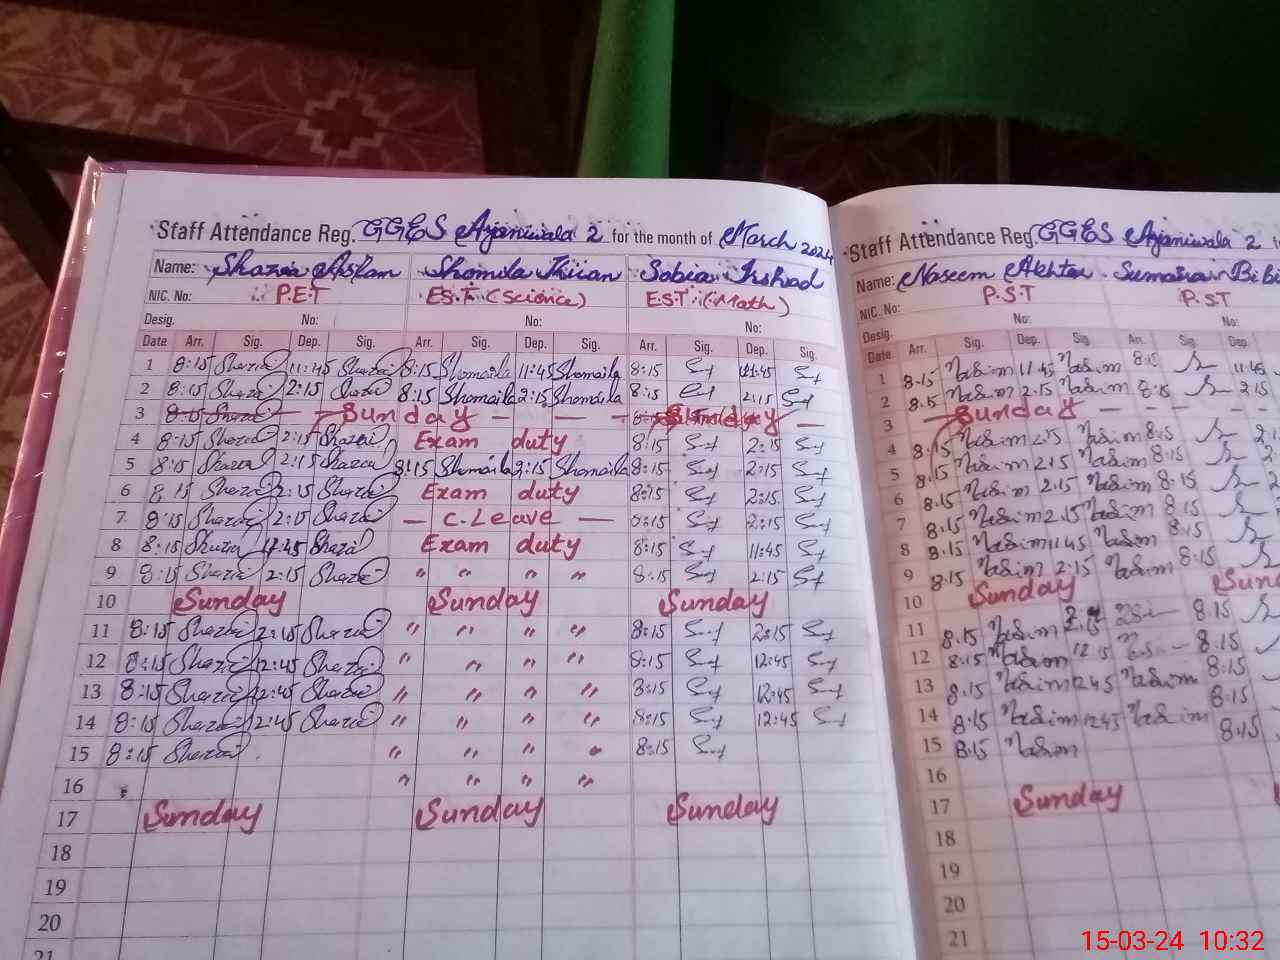 Staff Attendance Reg. GGES Ajaniwala 2 for the month of March 2024
Name: Shazia Aslam Shomila Sobia Irshad
NIC. No: P.E.T E.S.T (Science) E.S.T (Math)
Desig. No: No: No:
Date Arr. Sig. Dep. Sig. Arr. Sig. Dep. Sig. Arr. Sig. Dep. Sig.
1 8:15 Shazia 11:45 Shazia 8:15 Shomaila 11:45 Shomaila 8:15 11:45
2 8:15 Shazia 2:15 Shazia 8:15 Shomaila 2:15 Shomaila 8:15 2:15
3 8:15 Shazia Sunday Sunday
4 8:15 Shazia 2:15 Shazia Exam duty 8:15 2:15
5 8:15 Shazia 2:15 Shazia 8:15 Shomaila 2:15 Shomaila 8:15 2:15
6 8:15 Shazia 2:15 Shazia Exam duty 8:15 2:15
7 8:15 Shazia 2:15 Shazia — C. Leave — 8:15 2:15
8 8:15 Shazia 11:45 Shazia Exam duty 8:15 11:45
9 8:15 Shazia 2:15 Shazia " " " " 8:15 2:15
10 Sunday Sunday Sunday
11 8:15 Shazia 2:15 Shazia " " " " 8:15 2:15
12 8:15 Shazia 12:45 Shazia " " " " 8:15 12:45
13 8:15 Shazia 12:45 Shazia " " " " 8:15 12:45
14 8:15 Shazia 12:45 Shazia " " " " 8:15 12:45
15 8:15 Shazia " " " " 8:15
16 " " " "
17 Sunday Sunday Sunday
18
19
20
21
Staff Attendance Reg. GGES Ajaniwala 2
Name: Naseem Akhtar Sumaira Bi Bi
NIC. No: P.S.T P.S.T
Desig. No: No:
Date Arr. Sig. Dep. Sig. Arr. Sig. Dep.
1 8.15 Nasim 11.45 Nasim 8:15 11:45
2 8.15 Nasim 2.15 Nasim 8:15 2:15
3 Sunday
4 8.15 Nasim 2.15 Nasim 8:15
5 8.15 Nasim 2.15 Nasim 8:15
6 8.15 Nasim 2.15 Nasim 8:15
7 8.15 Nasim 2.15 Nasim 8:15
8 8.15 Nasim 11.45 Nasim 8:15
9 8.15 Nasim 2.15 Nasim 8:15
10 Sunday
11 8.15 Nasim 2.15 8.15
12 8.15 Nasim 8.15
13 8.15 Nasim 12.45 Nasim 8:15
14 8.15 Nasim 12.45 Nasim 8:15
15 8.15 Nasim 8:15
16
17 Sunday
18
19
20
21
15-03-24 10:32